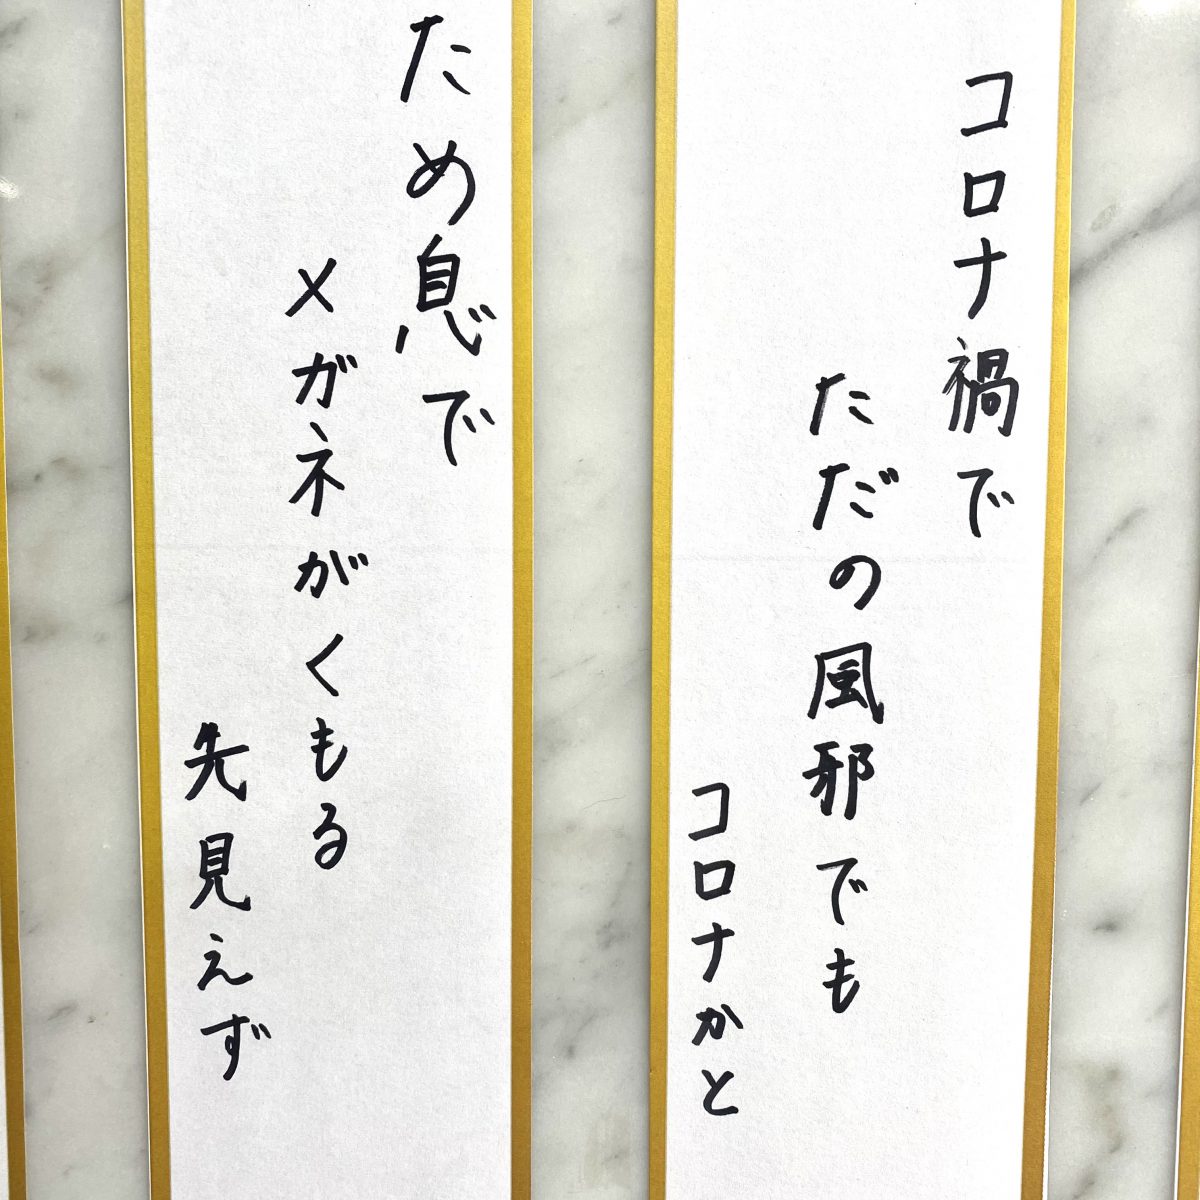 コロナ禍で
ただの風邪でも
コロナかと
ため息で
メガネがくもる
先見えず